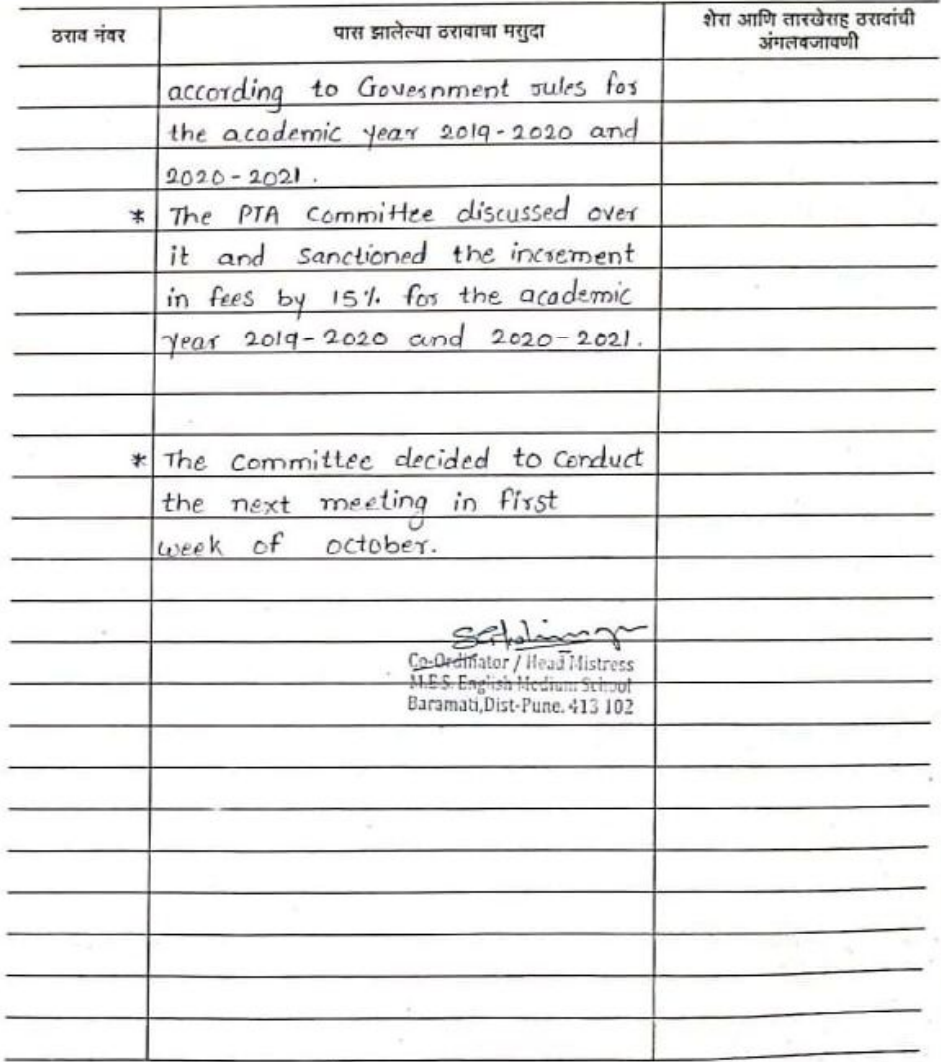 ठराव नंबर
पास झालेल्या ठरावाचा मसुदा
शेरा आणि तारखेसह ठरावांची
अंमलबजावणी
according to Government rules for
the academic year 2019-2020 and
2020-2021.
* The PTA committee discussed over
it and sanctioned the increment
in fees by 15% for the academic
year 2019-2020 and 2020-2021.
* The committee decided to conduct
the next meeting in first
week of october.
Co-Ordinator / Head Mistress
M.E.S. English Medium School
Baramati,Dist-Pune. 413 102